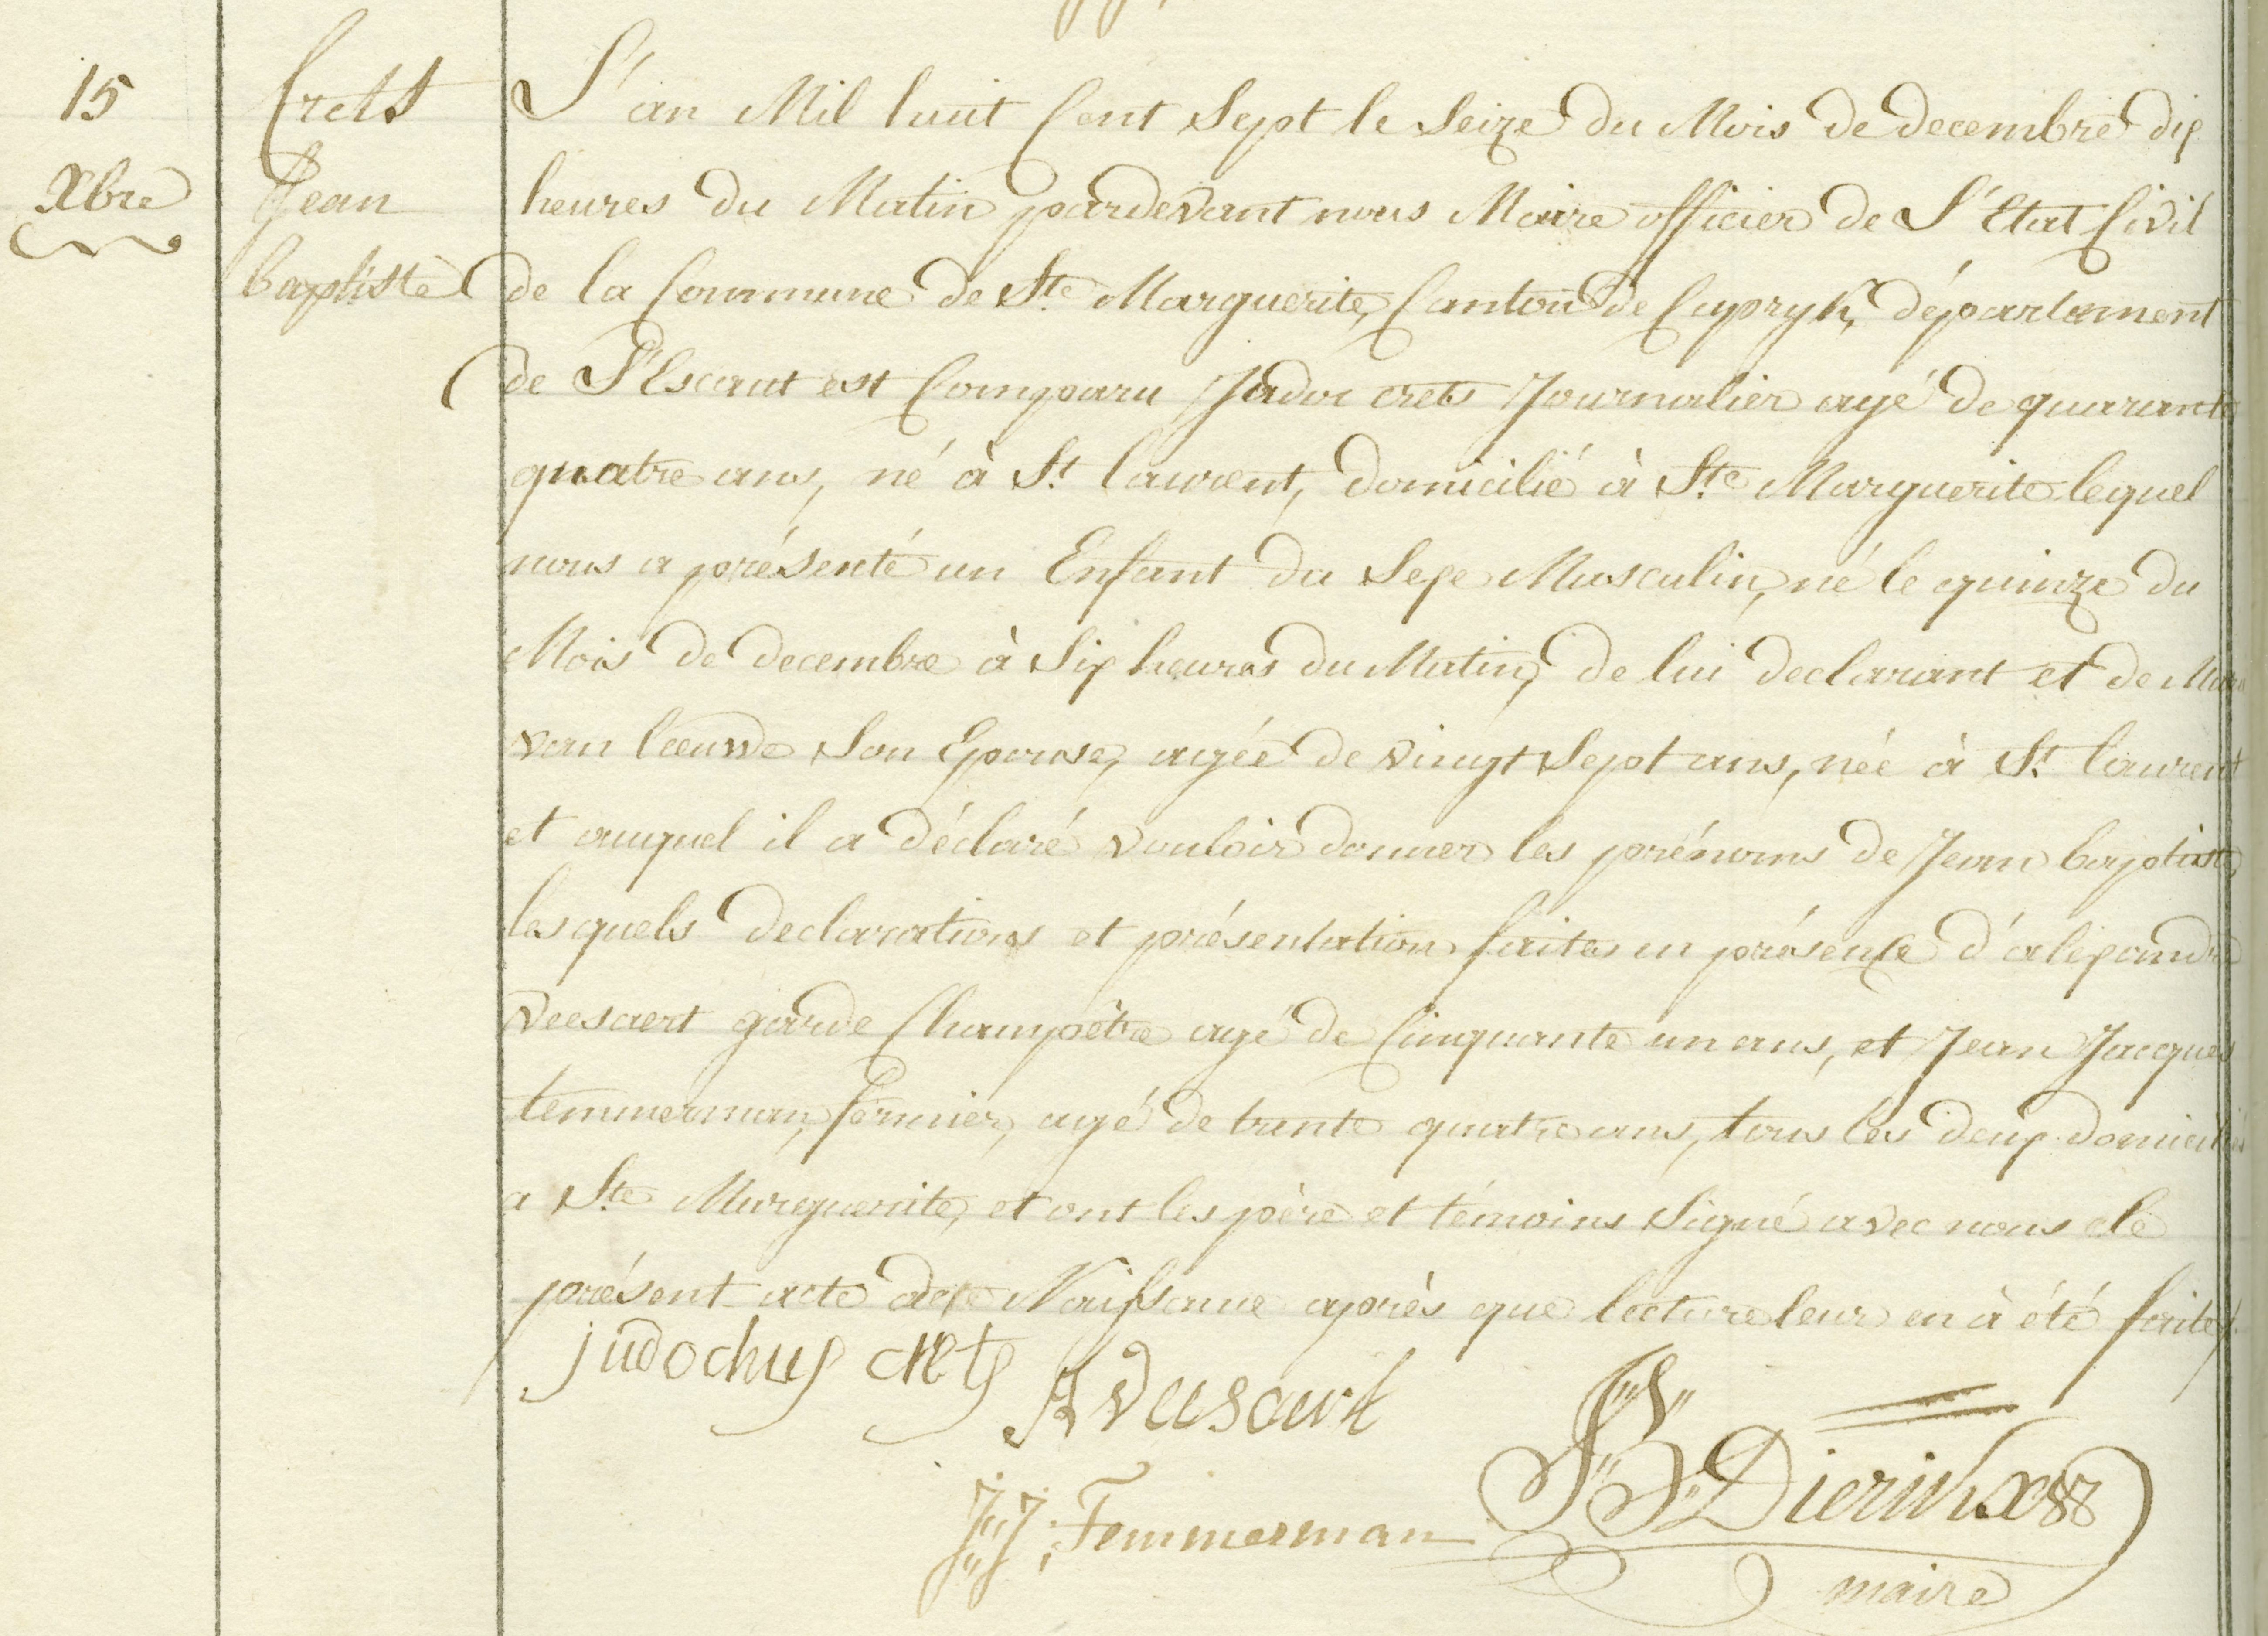 15
Xbre
Crets
Jean
baptiste
L'an Mil huit Cent Sept le Seize du Mois de decembre dix
heures du Matin pardevant nous Maire officier de L'Etat Civil
de la Commune de Ste Marguerite, Canton de Capryk, département
de L'Escaut est Comparu Jodoc crets Journalier agé de quarante
quatre ans, né à St. laurent, domicilié à Ste Marguerite lequel
nous a présenté un Enfant du Sexe Masculin, né le quinze du
Mois de decembre à Six heures du Matin, de lui declarant et de
van Son Epouse, agée de vingt Sept ans, née à St. laurent
et auquel il a déclaré vouloir donner les prénoms de Jean baptiste,
lesquels declarations et présentation faites en présence d'alexandre
veesaert garde Champêtre agé de Cinquante un ans, et Jean Jacques
temmerman, fermier, agé de trente quatre ans, tous les deux domiciliés
a Ste Marguerite, et ont les père et témoins Signé avec nous le
présent acte de Naissance après que lecture leur en à été faite
judochus crets
A veesaert
JJ: Temmerman
JB Dierickx
maire